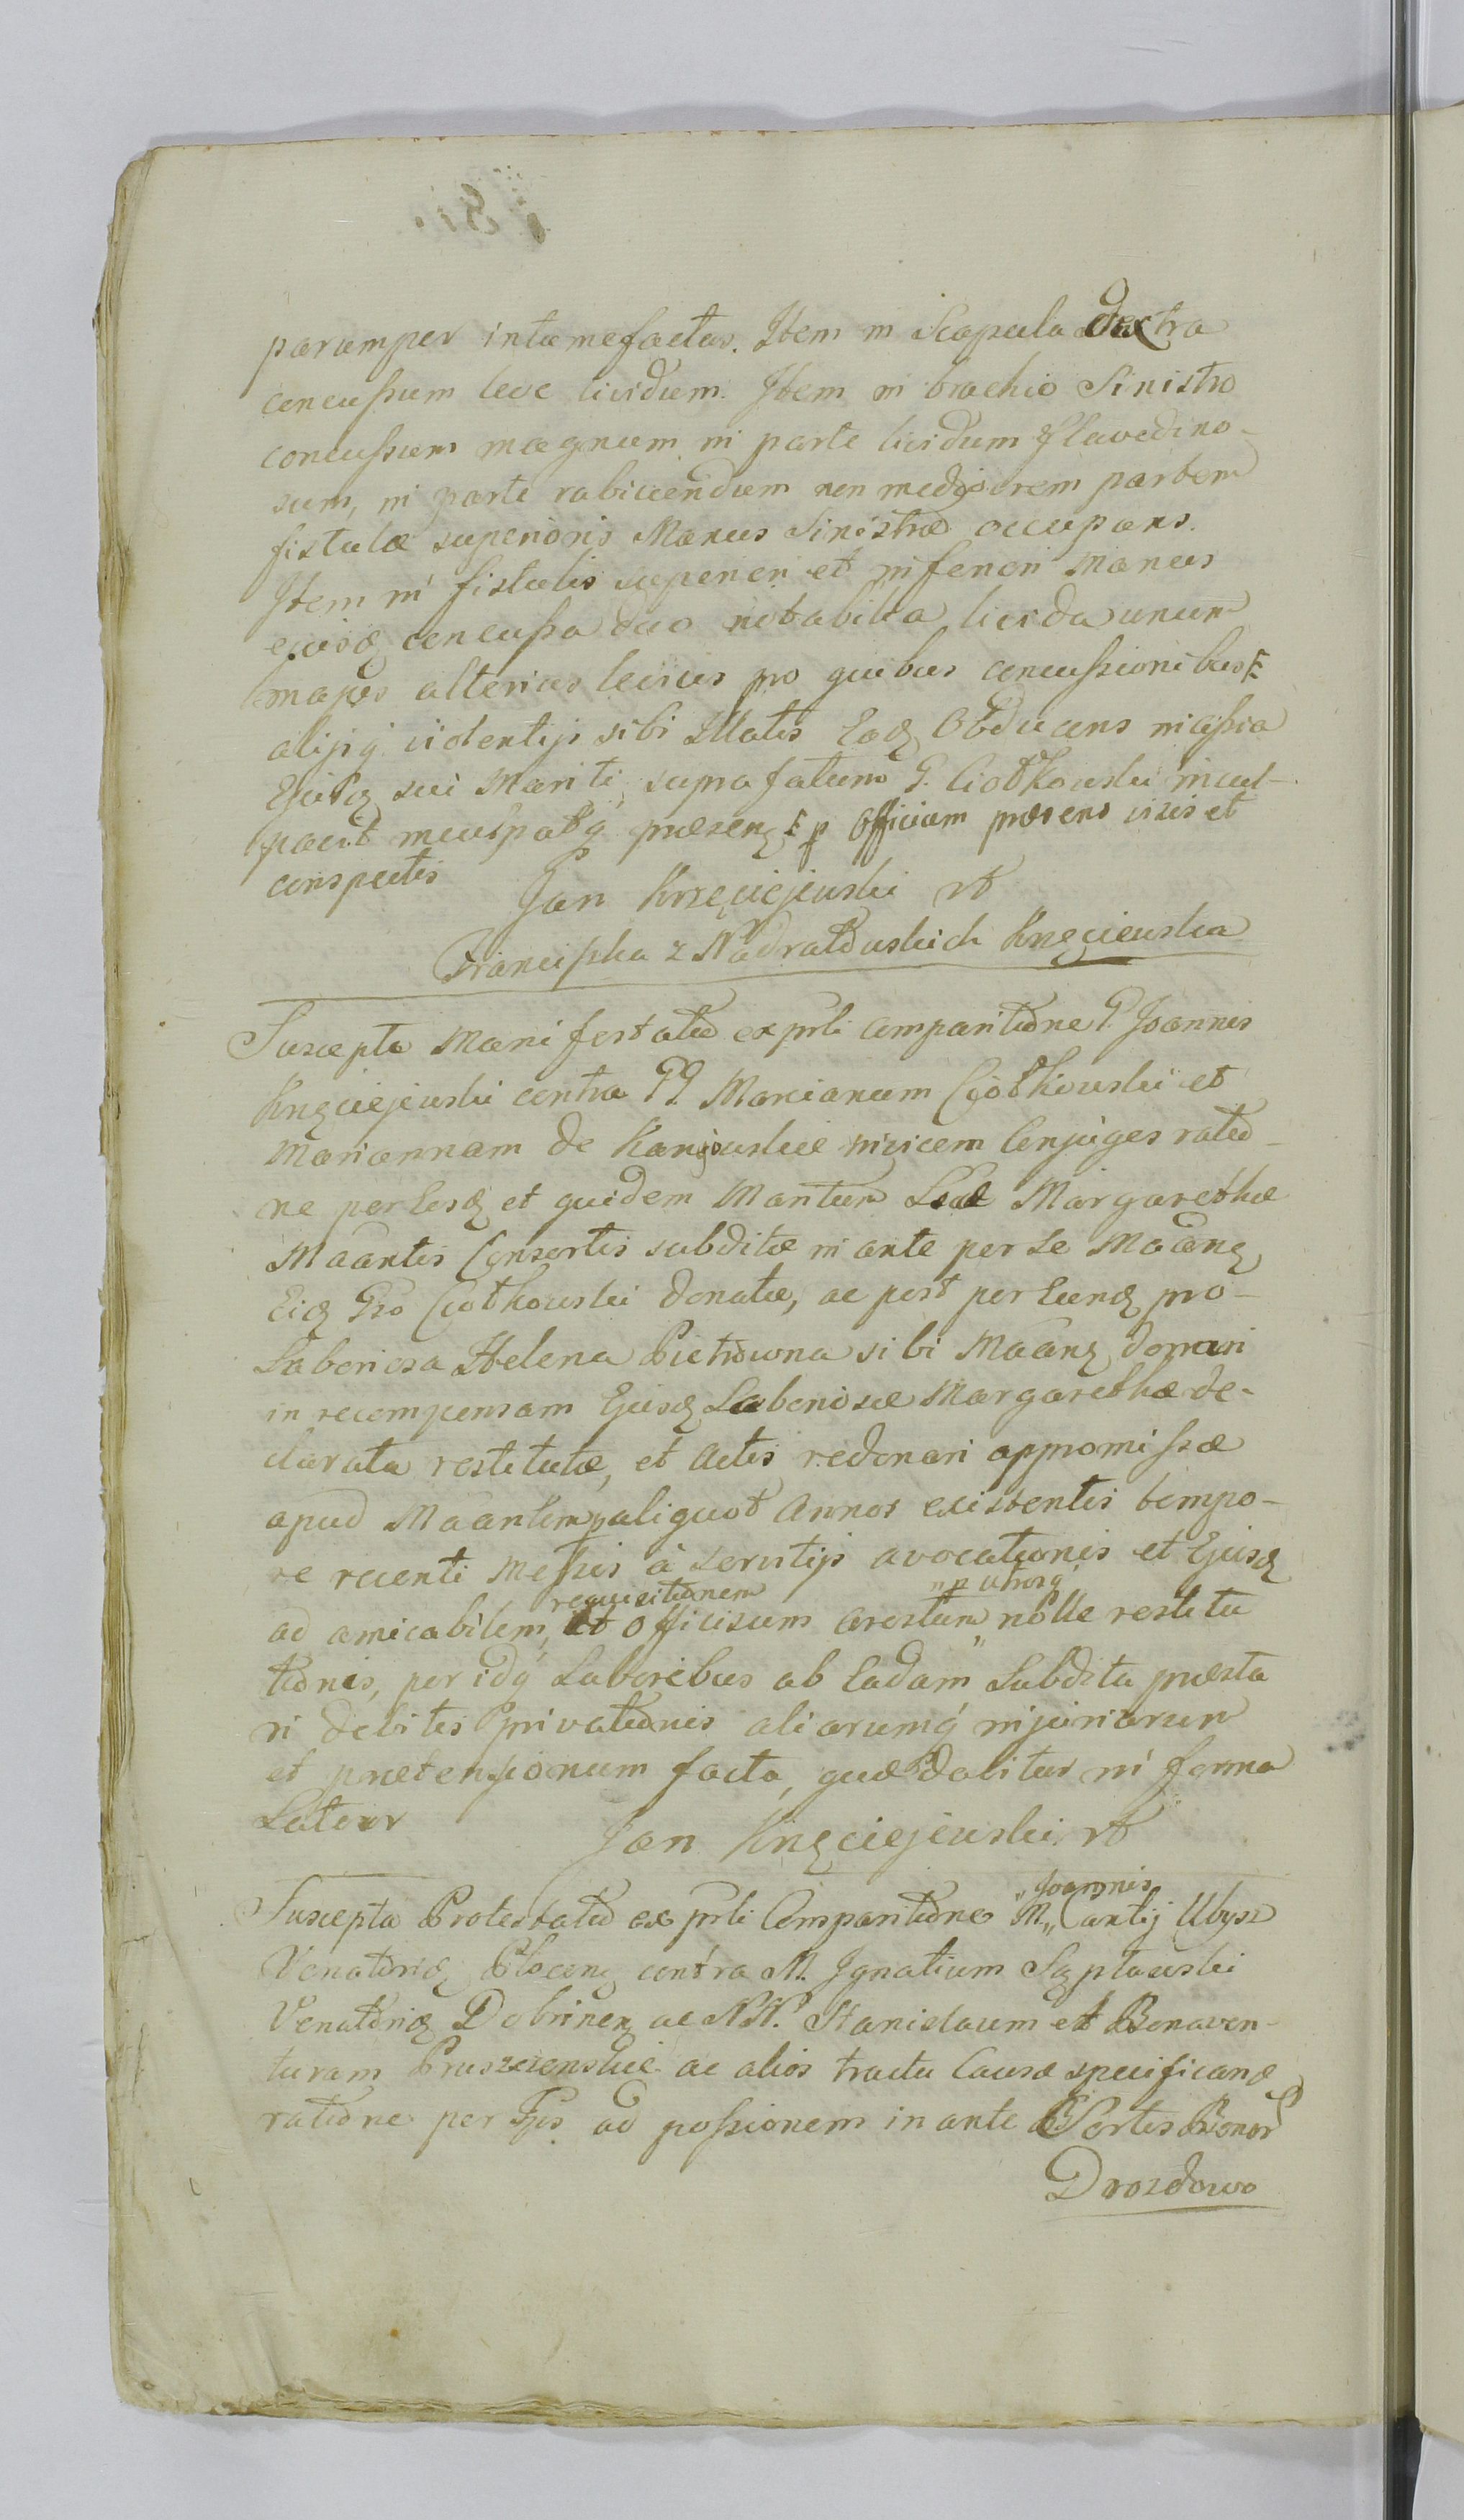 parumper intumefactus. Item in Scapula dextra
concussum leve lividum. Item in brachio Sinistro
concussum magnum in parte lividum flavedino-
sum, in parte rubicundum non mediocrem partem
fistulæ superioris Manus Sinistræ occupans.
Item in fistulis superiori et inferiori Manus
ejusdꝫ concussa duo notabilia livida unum
majus alterius levius pro quibus concussionibus
alijsq. violentijs sibi Illatis Eadꝫ Obducens
Ejusdꝫ sui Mariti supra fatum G. Ciołkowski incul-
pavit inculpatq. præsenꝫ p Officium præsens visis et
conspectis
Jan Krzęciejewski
Franciszka z Nadratowskich Kręciewska
Suscepta Manifestatio ex prsti comparitione G. Joannis
Kręciejewski contra GG. Marcianum Ciołkowski et
Mariannam de invicem Conjuges ratio-
ne perlesꝫ et quidem Mantum Margarethæ
Maantis Consortis subditæ in ante per se Maanꝫ
Eidꝫ Gso Ciołkowski donatæ, ac post per Eundꝫ pro
Laboriosa Helena Pietrowna sibi Maanꝫ donari
in recompensam Ejusdꝫ Laboriosæ Margarethæ de-
clarata restitutæ, et Actis redonari appromissæ
apud Maantem p aliquot Annos existentis tempo-
re recenti Messis à servitijs avocationis et Ejusdꝫ
requisitionem " p utrosq.
ad amicabilem, et Officiosum arestum " nolle restitu
tionis, per idq. Laboribus ab Eadam Subdita præsta
ri debitis privationis aliarumq. injuriarum
et prætensionum facta, quæ dabitur in forma
Latiori
Jan Kręciejewski
" Joannis
Suscepta Protestatio ex prsti Comparitione M. " Cantij Ubysz
Venatoridꝫ Plocenꝫ contra M. Ignatium
Venatoridꝫ Dobrinenꝫ ac NN. Stanislaum et Bonaven-
turam Pruszczenskie ac alios tractu Causæ specificandꝫ
ratione per Ipsos ad possionem in ante Sortis Bonor
Drozdowo